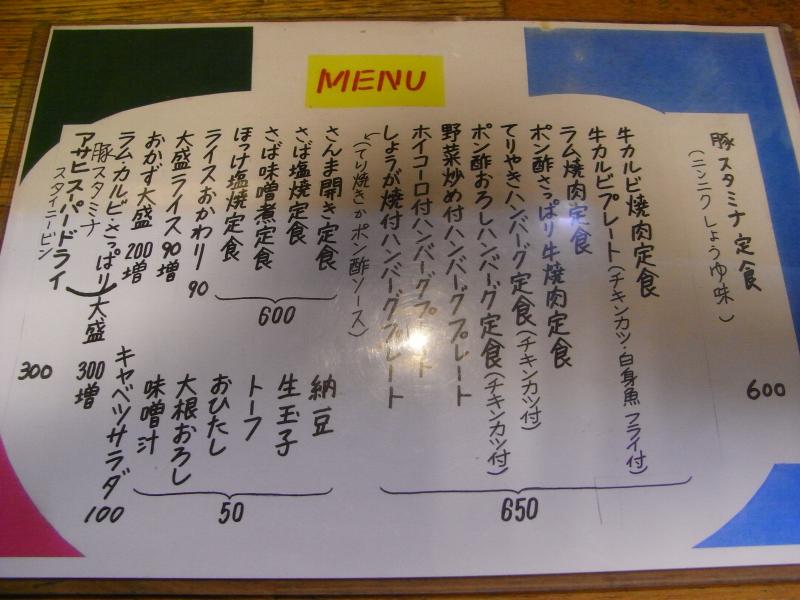 MENU
豚スタミナ定食
(ニンニクしょうゆ味)
600
牛カルビ焼肉定食
牛カルビプレート(チキンカツ・白身魚フライ付)
ラム焼肉定食
ポン酢さっぱり牛焼肉定食
てりやきハンバーグ定食(チキンカツ付)
ポン酢おろしハンバーグ定食(チキンカツ付)
野菜炒め付ハンバーグプレート
ホイコーロ付ハンバーグプレート
しょうが焼付ハンバーグプレート
(てり焼きかポン酢ソース)
650
さんま開き定食
さば塩焼定食
さば味噌煮定食
ほっけ塩焼定食
600
ライスおかわり 90
大盛ライス 90増
おかず大盛 200増
ラムカルビ・さっぱり
豚スタミナ
大盛 300増
アサヒスーパードライ
スタイニービン
300
納豆
生玉子
トーフ
おひたし
大根おろし
味噌汁
50
キャベツサラダ 100